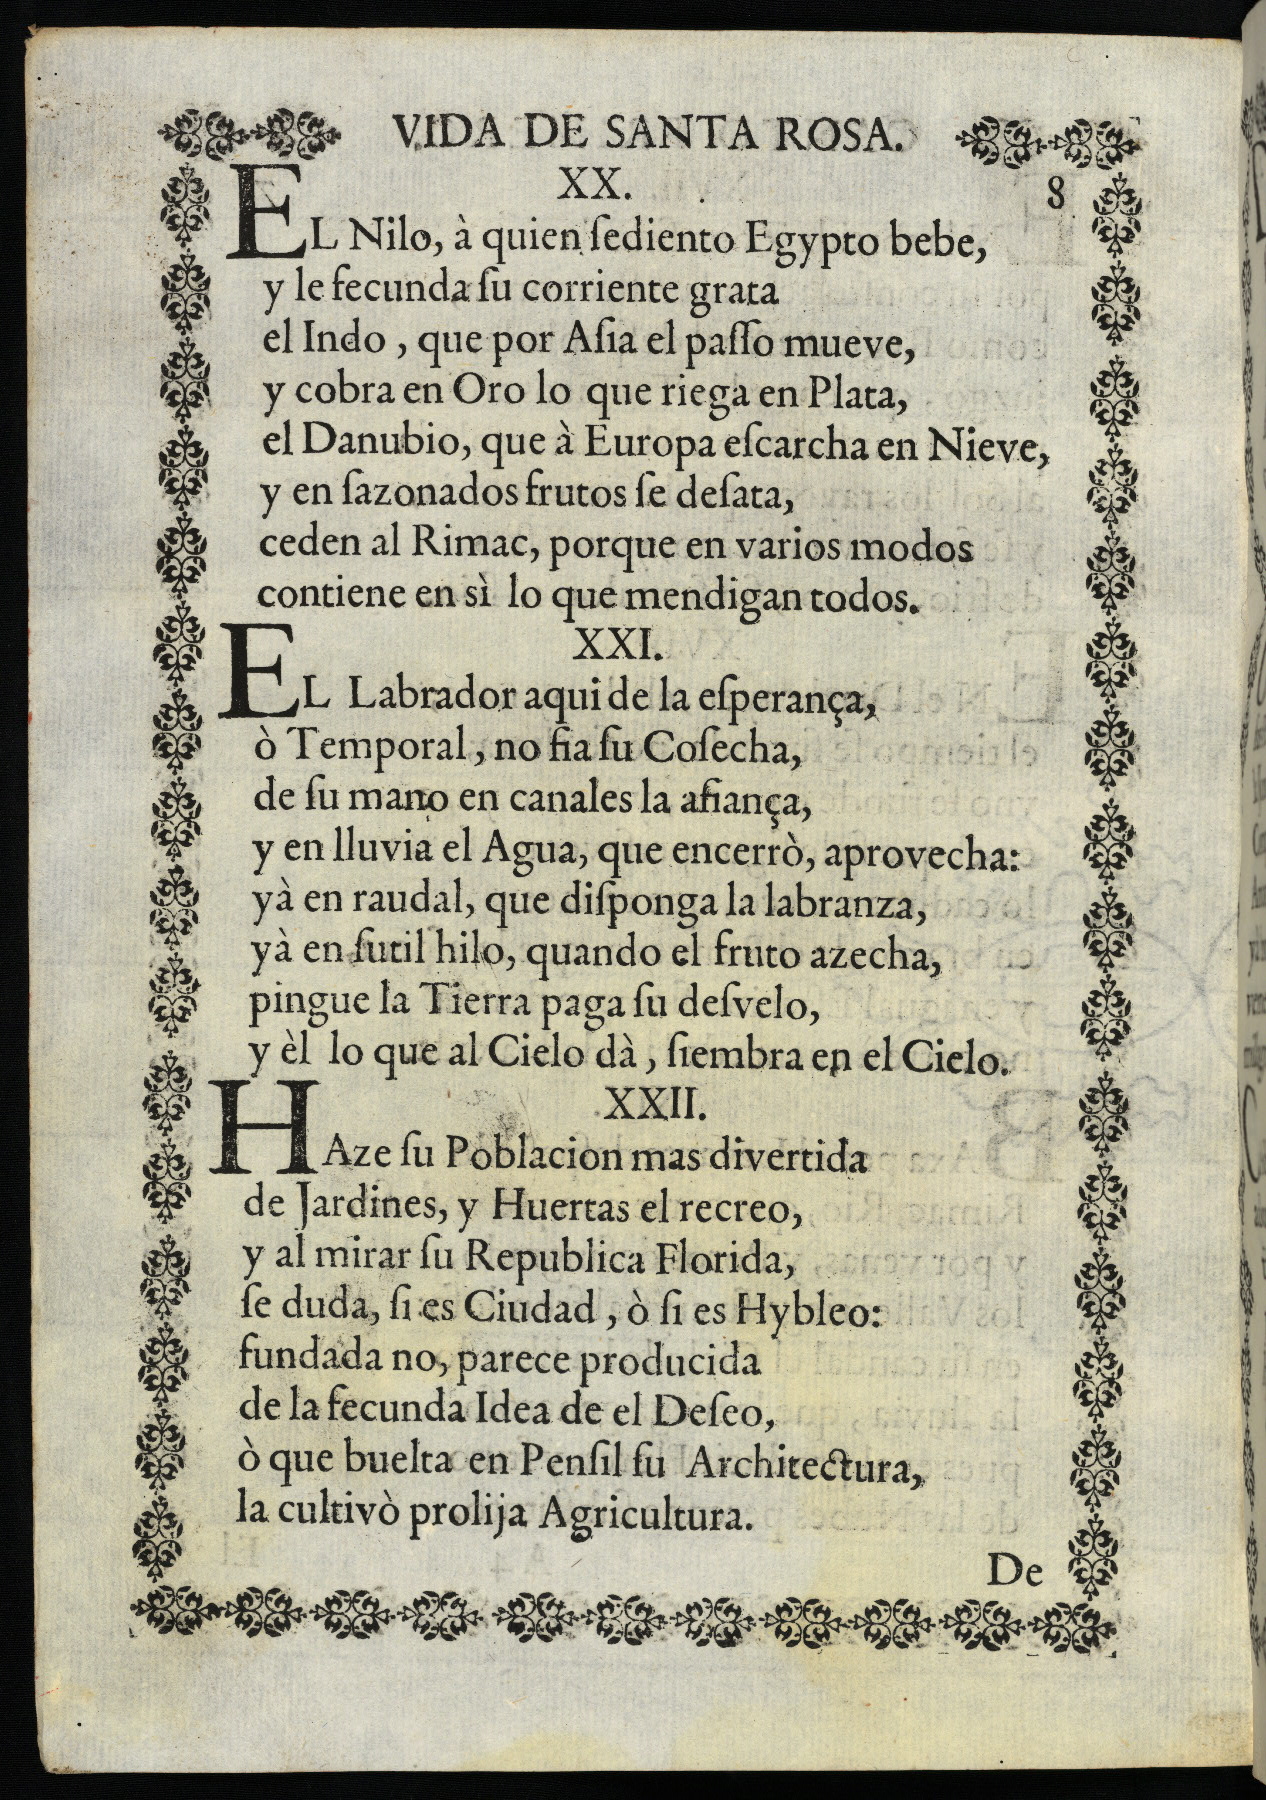 VIDA DE SANTA ROSA.
XX.
8
EL Nilo, à quien ſediento Egypto bebe,
y le fecunda ſu corriente grata
el Indo, que por Aſia el paſſo mueve,
y cobra en Oro lo que riega en Plata,
el Danubio, que à Europa eſcarcha en Nieve,
y en ſazonados frutos ſe deſata,
ceden al Rimac, porque en varios modos
contiene en sì lo que mendigan todos.
XXI.
EL Labrador aqui de la eſperança,
ò Temporal, no fia ſu Coſecha,
de ſu mano en canales la afiança,
y en lluvia el Agua, que encerrò, aprovecha:
yà en raudal, que diſponga la labranza,
yà en ſutil hilo, quando el fruto azecha,
pingue la Tierra paga ſu deſvelo,
y èl lo que al Cielo dà, ſiembra en el Cielo.
XXII.
HAze ſu Poblacion mas divertida
de Jardines, y Huertas el recreo,
y al mirar ſu Republica Florida,
ſe duda, ſi es Ciudad, ò ſi es Hybleo:
fundada no, parece producida
de la fecunda Idea de el Deſeo,
ò que buelta en Penſil ſu Architectura,
la cultivò prolija Agricultura.
De